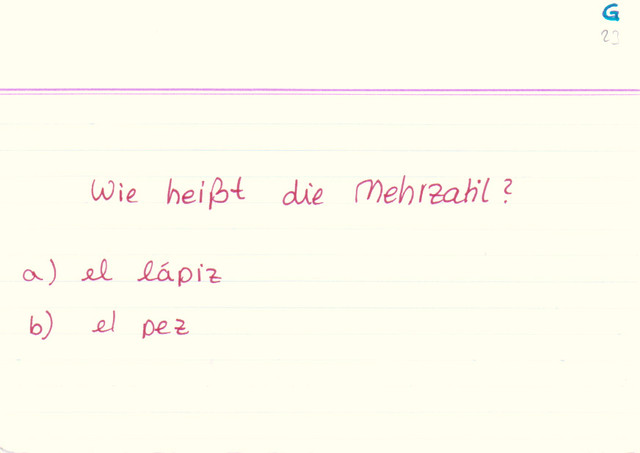 G
Wie heißt die Mehrzahl?
a) el lápiz
b) el pez